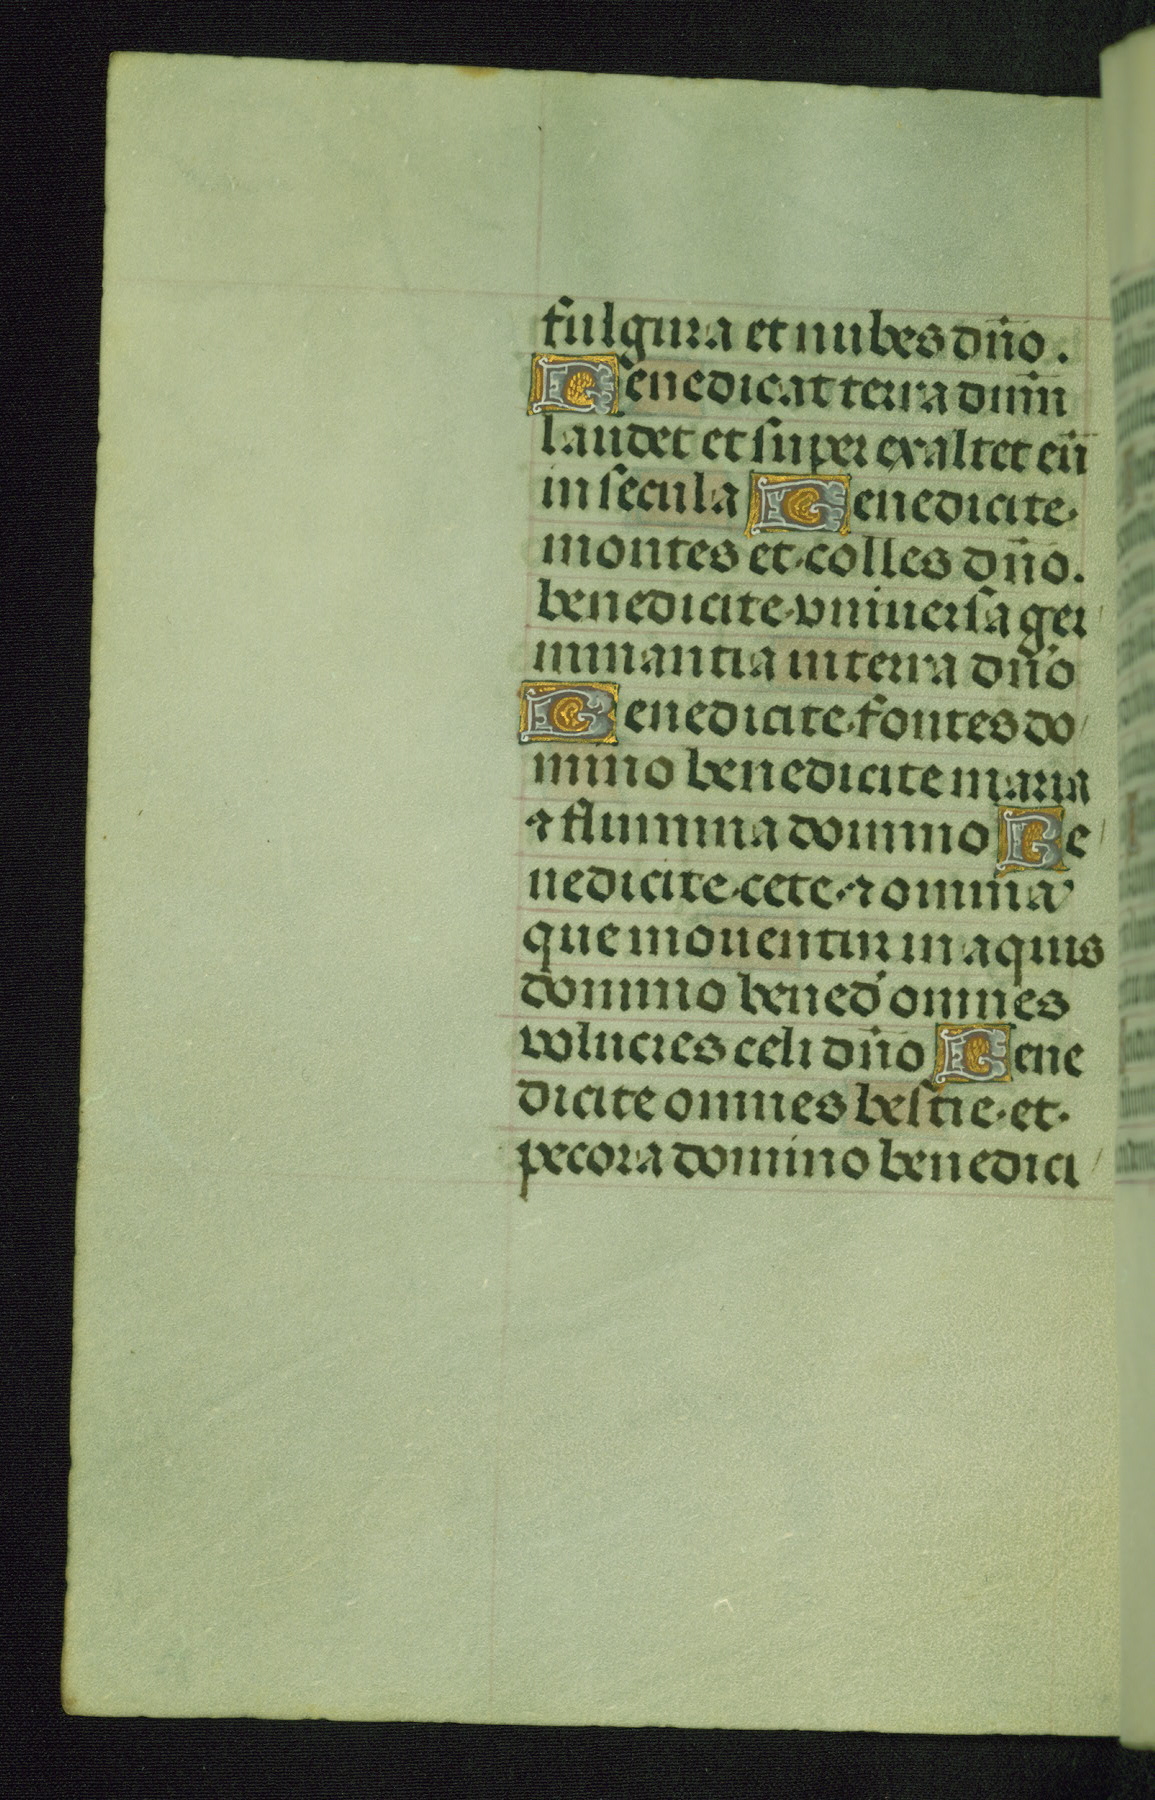 fulgura et nubes dn̄o.
Benedicat terra dnm̄
laudet et super exaltet eū
in secula Benedicite
montes et colles dn̄o.
benedicite vniuersa ger
minantia in terra dn̄o
Benedicite fontes do
mino benedicite maria
⁊ flumina domino Be
nedicite cete ⁊ omnia
que mouentur in aquis
domino bened' omnes
volucres celi dn̄o Bene
dicite omnes bestie et
pecora domino benedici